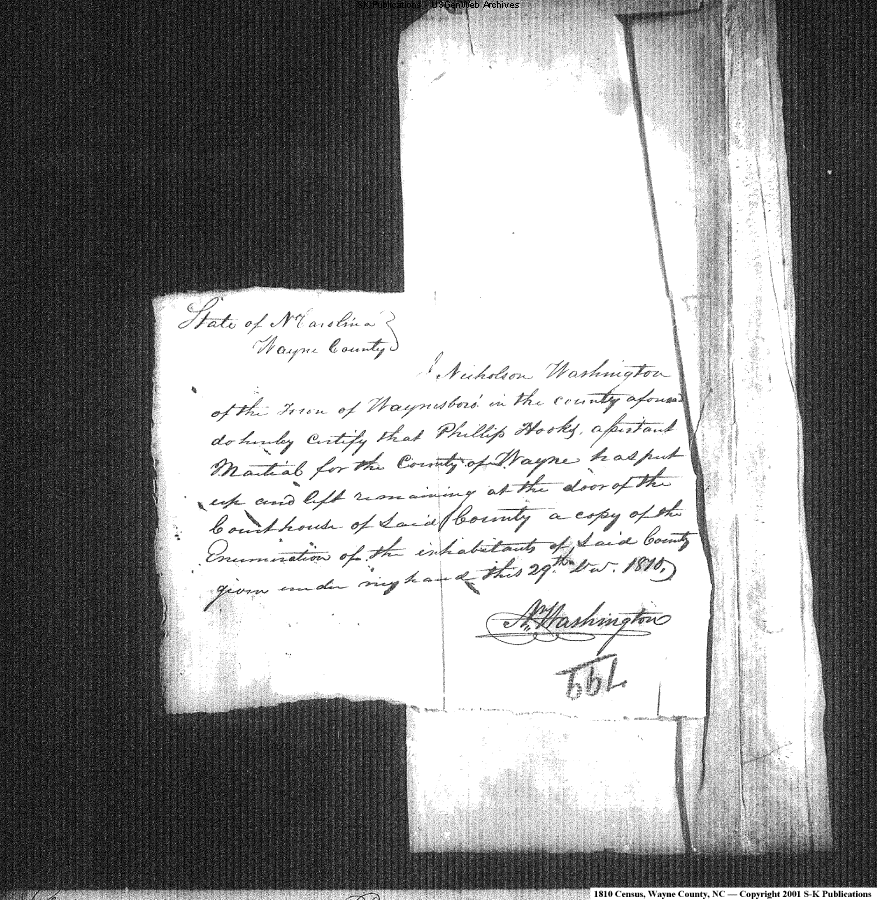 S-K Publications - USGenWeb Archives
State of N Carolina }
Wayne County }
I Nicholson Washington
of the Town of Waynesboro' in the county aforesd
do hereby certify that Phillip Hooks, assistant
Martial for the County of Wayne has put
up and left remaining at the door of the
Court house of Said County a copy of the
Enumeration of the inhabitants of Said County
given under my hand this 29th 1810,
N. Washington
1810 Census, Wayne County, NC — Copyright 2001 S-K Publications